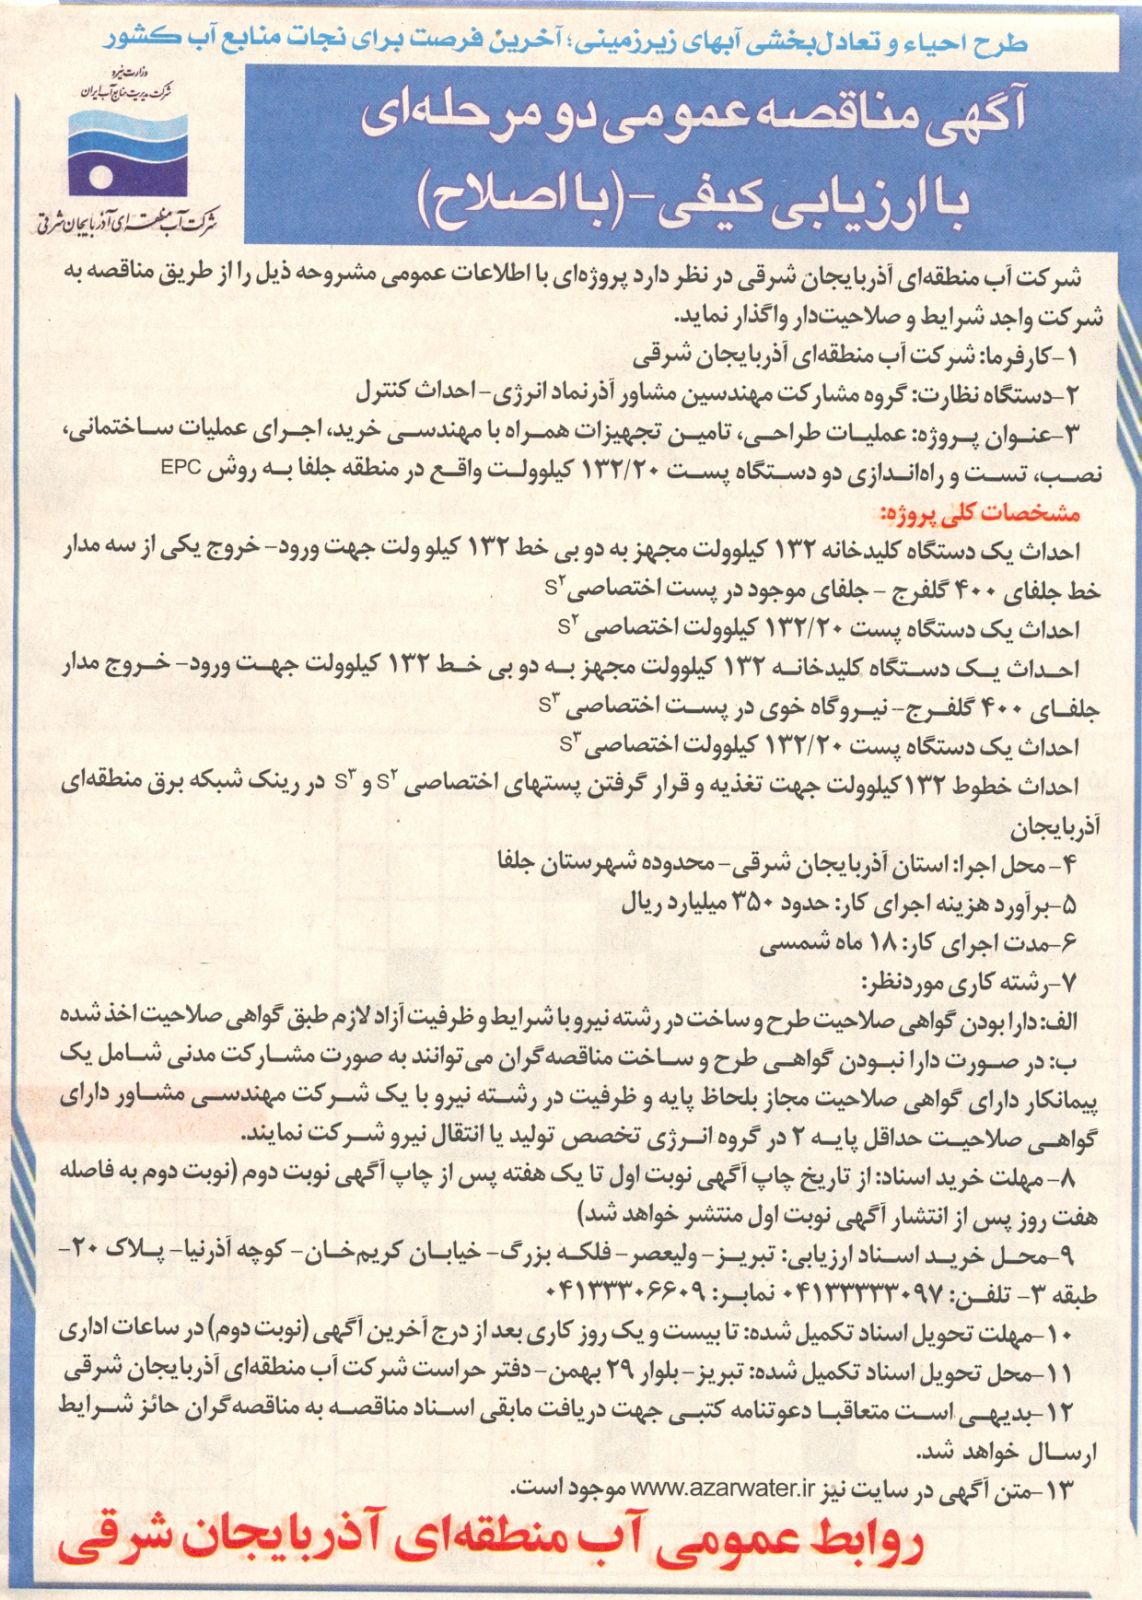 طرح احیاء و تعادل‌بخشی آبهای زیرزمینی؛ آخرین فرصت برای نجات منابع آب کشور
وزارت نیرو
شرکت مدیریت منابع آب ایران
شرکت آب منطقه‌ای آذربایجان شرقی
آگهی مناقصه عمومی دو مرحله‌ای
با ارزیابی کیفی-(با اصلاح)
شرکت آب منطقه‌ای آذربایجان شرقی در نظر دارد پروژه‌ای با اطلاعات عمومی مشروحه ذیل را از طریق مناقصه به
شرکت واجد شرایط و صلاحیت‌دار واگذار نماید.
۱-کارفرما: شرکت آب منطقه‌ای آذربایجان شرقی
۲-دستگاه نظارت: گروه مشارکت مهندسین مشاور آذرنماد انرژی- احداث کنترل
۳-عنوان پروژه: عملیات طراحی، تامین تجهیزات همراه با مهندسی خرید، اجرای عملیات ساختمانی،
نصب، تست و راه‌اندازی دو دستگاه پست ۱۳۲/۲۰ کیلوولت واقع در منطقه جلفا به روش EPC
مشخصات کلی پروژه:
احداث یک دستگاه کلیدخانه ۱۳۲ کیلوولت مجهز به دو بی خط ۱۳۲ کیلو ولت جهت ورود- خروج یکی از سه مدار
خط جلفای ۴۰۰ گلفرج - جلفای موجود در پست اختصاصی S۲
احداث یک دستگاه پست ۱۳۲/۲۰ کیلوولت اختصاصی S۲
احداث یک دستگاه کلیدخانه ۱۳۲ کیلوولت مجهز به دو بی خط ۱۳۲ کیلوولت جهت ورود- خروج مدار
جلفای ۴۰۰ گلفرج- نیروگاه خوی در پست اختصاصی S۳
احداث یک دستگاه پست ۱۳۲/۲۰ کیلوولت اختصاصی S۳
احداث خطوط ۱۳۲کیلوولت جهت تغذیه و قرار گرفتن پستهای اختصاصی S۲ و S۳ در رینک شبکه برق منطقه‌ای
آذربایجان
۴- محل اجرا: استان آذربایجان شرقی- محدوده شهرستان جلفا
۵-برآورد هزینه اجرای کار: حدود ۳۵۰ میلیارد ریال
۶-مدت اجرای کار: ۱۸ ماه شمسی
۷-رشته کاری موردنظر:
الف: دارا بودن گواهی صلاحیت طرح و ساخت در رشته نیرو با شرایط و ظرفیت آزاد لازم طبق گواهی صلاحیت اخذ شده
ب: در صورت دارا نبودن گواهی طرح و ساخت مناقصه‌گران می‌توانند به صورت مشارکت مدنی شامل یک
پیمانکار دارای گواهی صلاحیت مجاز بلحاظ پایه و ظرفیت در رشته نیرو با یک شرکت مهندسی مشاور دارای
گواهی صلاحیت حداقل پایه ۲ در گروه انرژی تخصص تولید یا انتقال نیرو شرکت نمایند.
۸- مهلت خرید اسناد: از تاریخ چاپ آگهی نوبت اول تا یک هفته پس از چاپ آگهی نوبت دوم (نوبت دوم به فاصله
هفت روز پس از انتشار آگهی نوبت اول منتشر خواهد شد)
۹-محل خرید اسناد ارزیابی: تبریز- ولیعصر- فلکه بزرگ- خیابان کریم‌خان- کوچه آذرنیا- پلاک ۲۰-
طبقه ۳- تلفن: ۰۴۱۳۳۳۳۳۰۹۷ نمابر: ۰۴۱۳۳۳۰۶۶۰۹
۱۰-مهلت تحویل اسناد تکمیل شده: تا بیست و یک روز کاری بعد از درج آخرین آگهی (نوبت دوم) در ساعات اداری
۱۱-محل تحویل اسناد تکمیل شده: تبریز- بلوار ۲۹ بهمن- دفتر حراست شرکت آب منطقه‌ای آذربایجان شرقی
۱۲-بدیهی است متعاقبا دعوتنامه کتبی جهت دریافت مابقی اسناد مناقصه به مناقصه‌گران حائز شرایط
ارسال خواهد شد.
۱۳-متن آگهی در سایت نیز www.azarwater.ir موجود است.
روابط عمومی آب منطقه‌ای آذربایجان شرقی